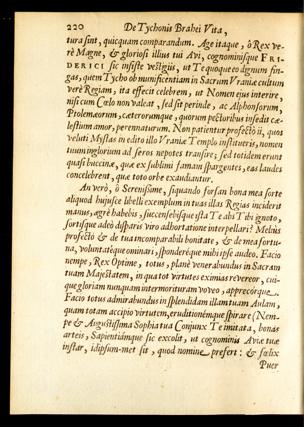 220 De Tychonis Brahei Vita,
tura sint, quicquam comparandum. Age itaque, ô Rex ve-
rè Magne, & gloriosi illius tui Avi, cognominisque FRI-
DERICI sic insiste vestigiis, ut Te quoque eo dignum fin-
gas, quem Tycho ob munificentiam in Sacrum Vraniæ cultum
verè Regiam, ita effecit celebrem, ut Nomen ejus interire,
nisi cum Cœlo non valeat, sed sit perinde, ac Alphonsorum,
Ptolemæorum, cæterorumque, quorum pectoribus insedit cæ-
lestium amor, perennaturum. Non patientur profectò ii, quos
veluti Mystas in edito illo Vraniæ Templo instaveris, nomen
tuum inglorium ad seros nepotes transire; sed totidem erunt
quasi buccinæ, quæ ex sublimi famam spargentes, eas laudes
concelebrent, quæ toto orbe exaudiantur.
An verò, ô Serenissime, siquando forsan bona mea sorte
aliquod hujusce libelli exemplum in tuas illas Regias inciderit
manus, ægrè habebis, succensebisque ista Te abs Tibi ignoto,
fortisque adeò disparis viro adhortatione interpellari? Melius
profectò & de tua incomparabili bonitate, & de mea fortu-
na, voluntatéque ominor, quàm ut id sponderéque mihi ipse audeo. Facio
nempe, Rex Optime, totus, planè venerabundus in Sacram
tuam Majestatem, in qua tot virtutes eximias revereor, cui-
que gloriam nunquam intermorituram voveo, apprecórque.
Facio totus admirabundus in splendidam illam tuam Aulam,
quam totam accipio virtutem, eruditionémque spirare (Nem-
pe & Augustissima Sophia tua Conjunx Te imitata, bonas
arteis, Sapientiámque sic excolit, ut cognominis Aviæ tuæ
instar, idipsum-met sit, quod nomine prefert: & fœlix
Puer